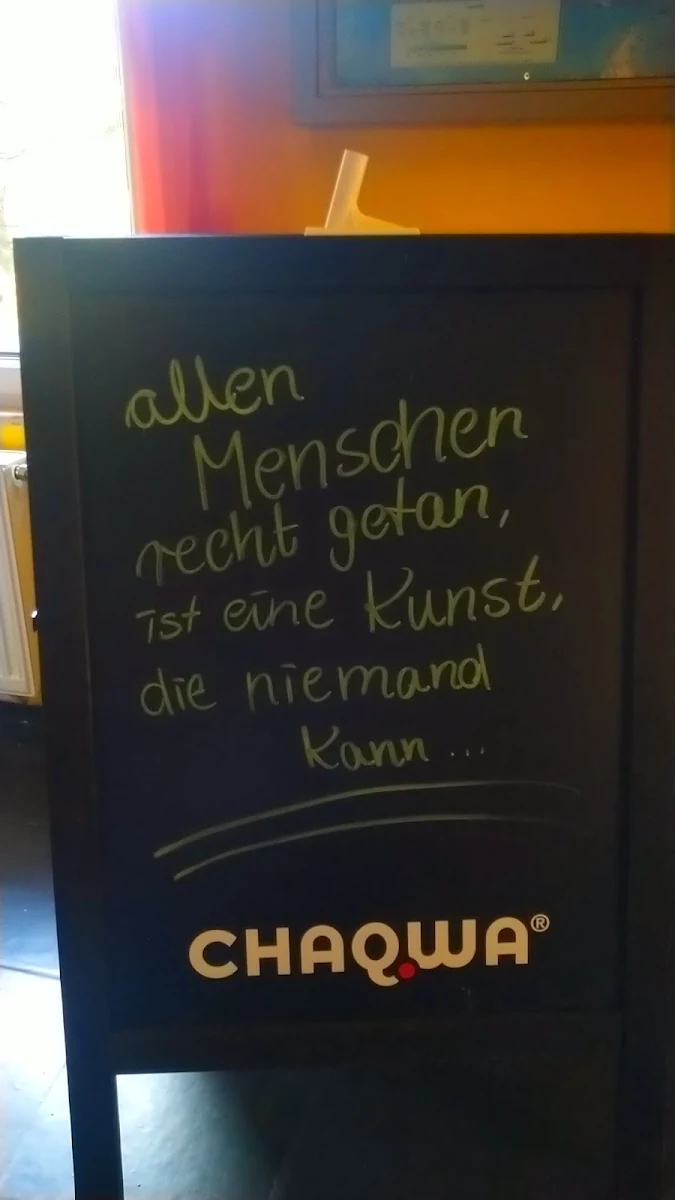 allen
Menschen
recht getan,
ist eine Kunst,
die niemand
kann ...
CHAQWA®